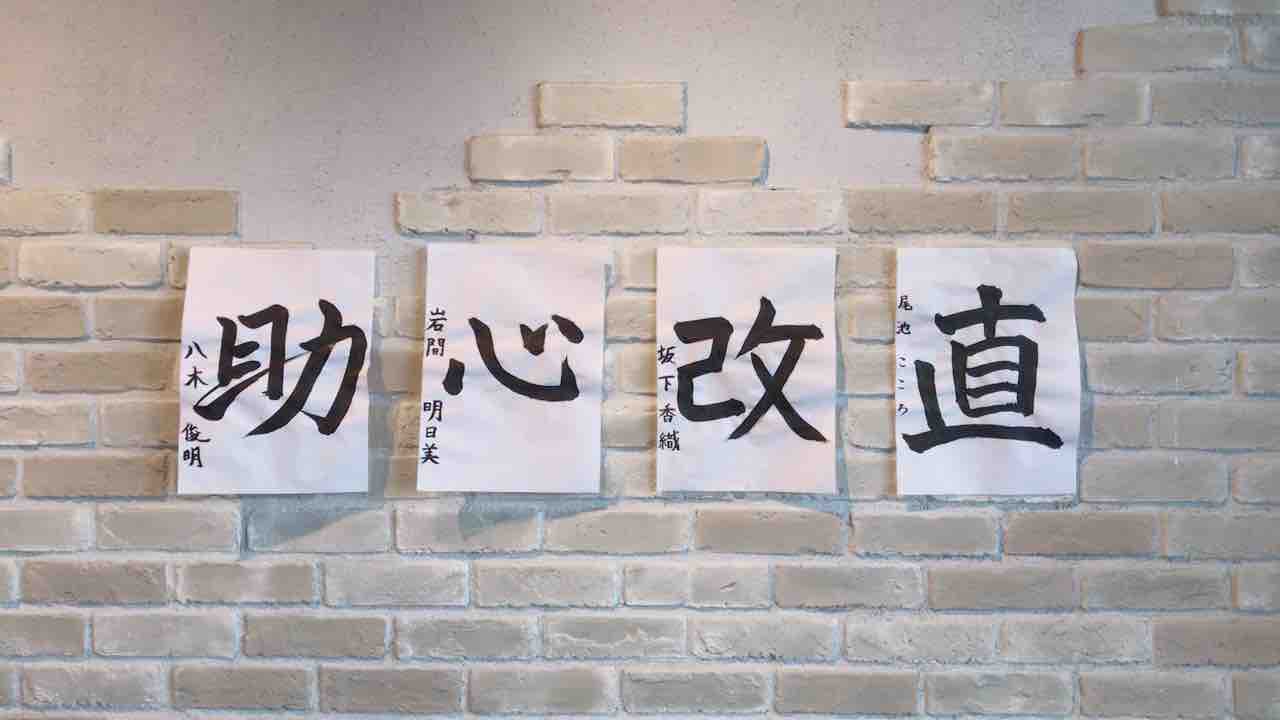 助
八木 俊明
心
岩間 明日美
改
坂下香織
直
尾池 こころ